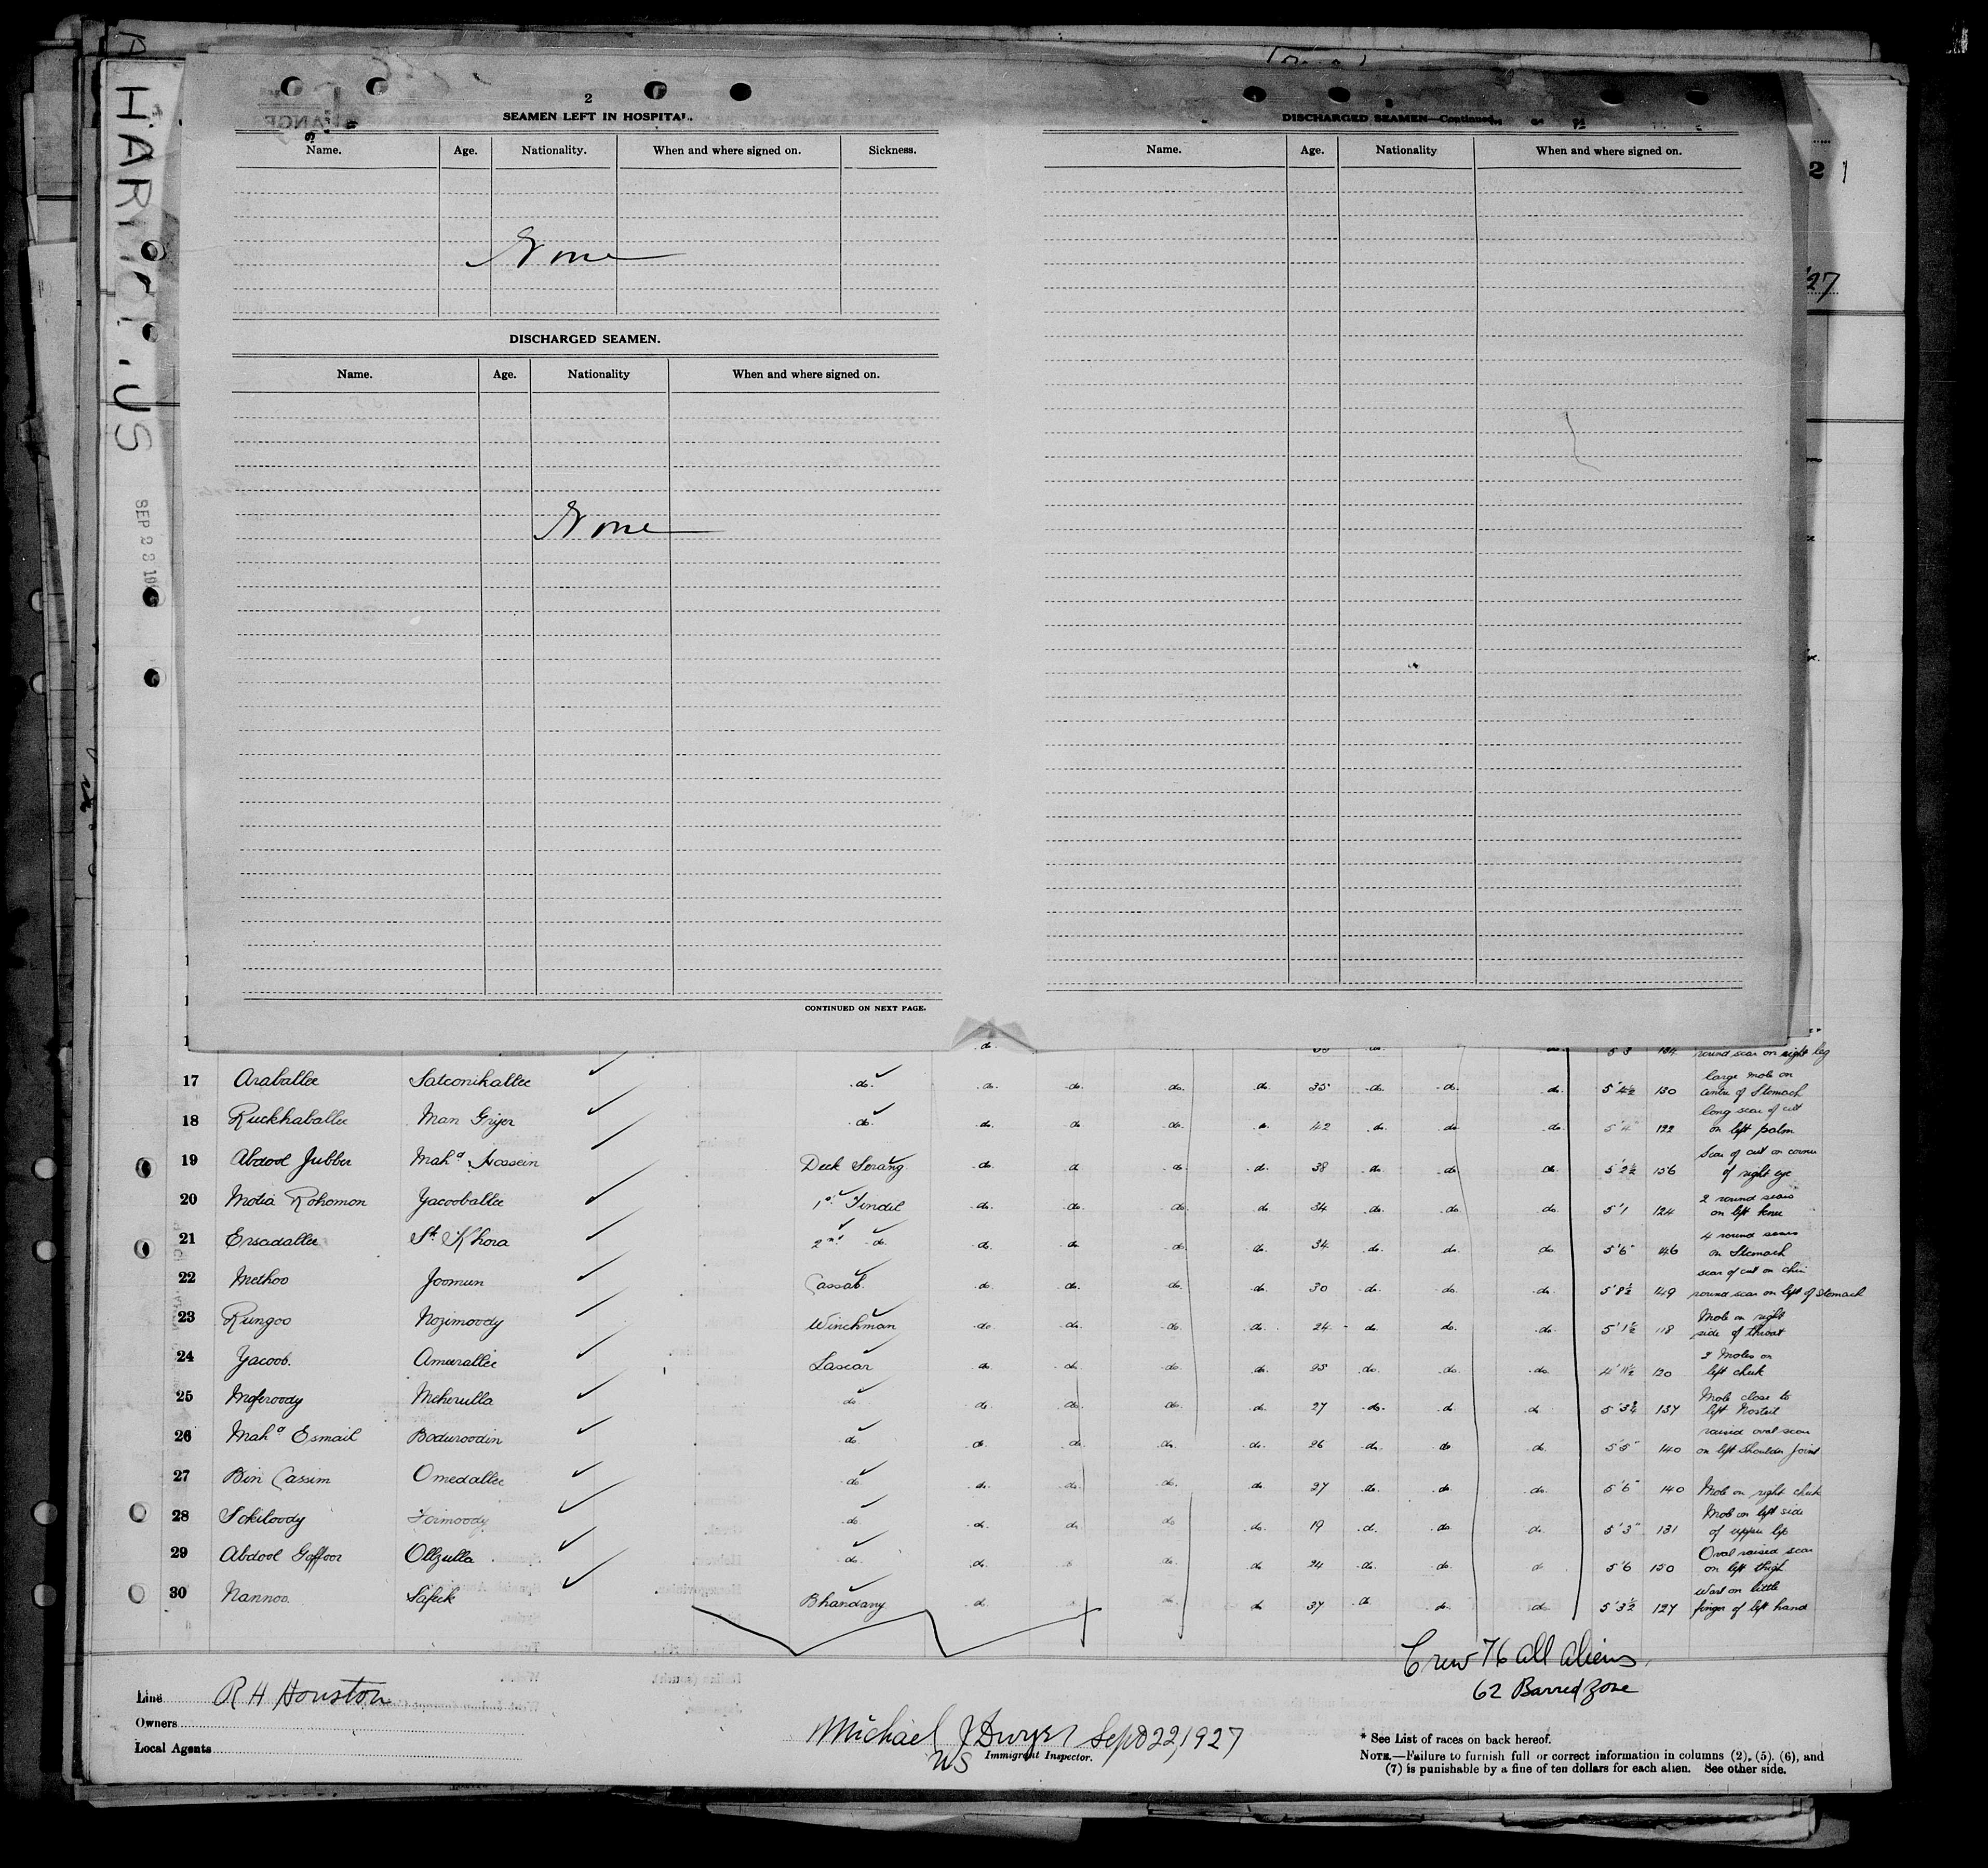 2
SEAMEN LEFT IN HOSPITAL.
Name. Age. Nationality. When and where signed on. Sickness.
None
DISCHARGED SEAMEN.
Name. Age. Nationality When and where signed on.
None
CONTINUED ON NEXT PAGE.
DISCHARGED SEAMEN—Continued.
Name. Age. Nationality When and where signed on.
2 1
27
SEP 23
do. do. do. 5'3 134 round scar on right leg
17 Araballee do. do. do. do. do. 35 do. do. do. 130 large mole on centre of Stomach
18 Ruckhaballee Man Grijer do. do. do do. 42 do. do. do. 5'4" 122 long scar of cut on left palm
19 Abdool Jubber Mahd Hossein Deck Serang do. d do. do. 38 do. do. do. 5'2½ 156 Scar of cut on corner of right eye
20 Motia Rohomon Yacooballee 1st Tindel do. do. do. do. 34 do. do. do. 5'1 124 2 round scars on left knee
21 Ersadallee Sk Khora 2nd do. do. do do. do. 34 do. do. do. 5'6" 146 4 round scars on Stomach
22 Methoo Joomun Cassab. do do. do. do. 30 do. do. do. 5'8½ 149 scar of cut on chin round scar on left of Stomach
23 Rungoo Nozimoody Winchman do. do. do. do. 24 do. do. do. 5'1½ 118 Mole on right side of throat
24 Yacoob. Ameerallee Lascar do do. do. do. 25 do. do. do. 4'11½ 120 3 Moles on left cheek
25 Meherulla do do. do. do. do. 27 do. do do 5'3¾ 137 Mole close to left Nostril
26 Mahd Esmail Boduroodin do. do. do. do. do. 26 do. do do. 5'5" 140 raised oval scar on left Shoulder Joint
27 Bin Cassim Omedallee do. do. do. do. do. 27 do. do. do. 5'6" 140 Mole on right cheek
28 do do. do do do. 19 do. do. do. 5'3" 131 Mole on left side of upper lip
29 Abdool Goffoor Ollzulla do. do. do. do 24 do. do. do 5'6 150 Oval raised scar on left thigh
30 Nannoo. Safeek Bhandary do. do. do 37 do do. do. 5'3½ 127 Wart on little finger of left hand
Crew 76 all aliens,
62 Barred zone
Line R H Houston
Owners
Local Agents
Michael J Dwyer Sept 22, 1927
WS Immigrant Inspector.
* See List of races on back hereof.
NOTE.—Failure to furnish full or correct information in columns (2), (5), (6), and
(7) is punishable by a fine of ten dollars for each alien. See other side.